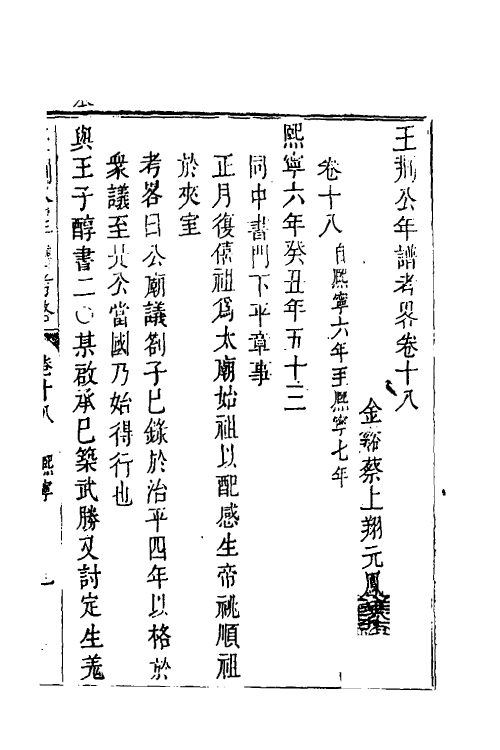 王荆公年譜考畧卷十八
金谿蔡上翔元鳳
卷十八自熙寧六年至熙寧七年
熙寧六年癸丑年五十三
同中書門下平章事
正月復僖祖爲太廟始祖以配感生帝祧順祖
於夾室
考畧曰公廟議劄子巳錄於治平四年以格於
衆議至此公當國乃始得行也
與王子醇書二〇某啟承巳築武勝又討定生羗
卷十八 熙寧